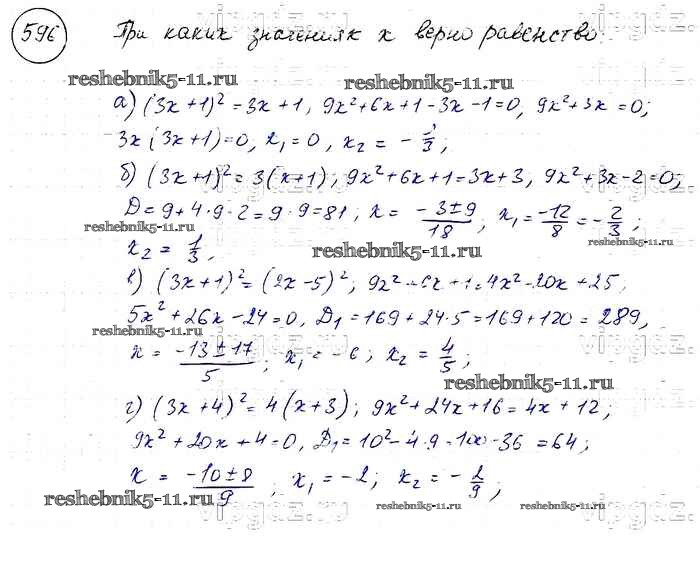 596 При каких значениях х верно равенство:
reshebnik5-11.ru reshebnik5-11.ru
а) (3x+1)² = 3x+1, 9x²+6x+1-3x-1=0, 9x²+3x=0;
3x(3x+1)=0, x₁=0, x₂ = -1/3;
б) (3x+1)² = 3(x+1); 9x²+6x+1=3x+3, 9x²+3x-2=0;
D=9+4·9·2=9·9=81; x = (-3±9)/18; x₁ = -12/8 = -2/3;
reshebnik5-11.ru reshebnik5-11.ru
x₂ = 1/3, reshebnik5-11.ru
в) (3x+1)² = (2x-5)², 9x²+6x+1=4x²-20x+25,
5x²+26x-24=0, D₁=169+24·5=169+120=289,
reshebnik5-11.ru
x = (-13±17)/5; x₁ = -6; x₂ = 4/5;
reshebnik5-11.ru
г) (3x+4)² = 4(x+3); 9x²+24x+16=4x+12,
9x²+20x+4=0, D₁=10²-4·9=100-36=64;
x = (-10±8)/9, x₁ = -2; x₂ = -2/9;
reshebnik5-11.ru reshebnik5-11.ru reshebnik5-11.ru